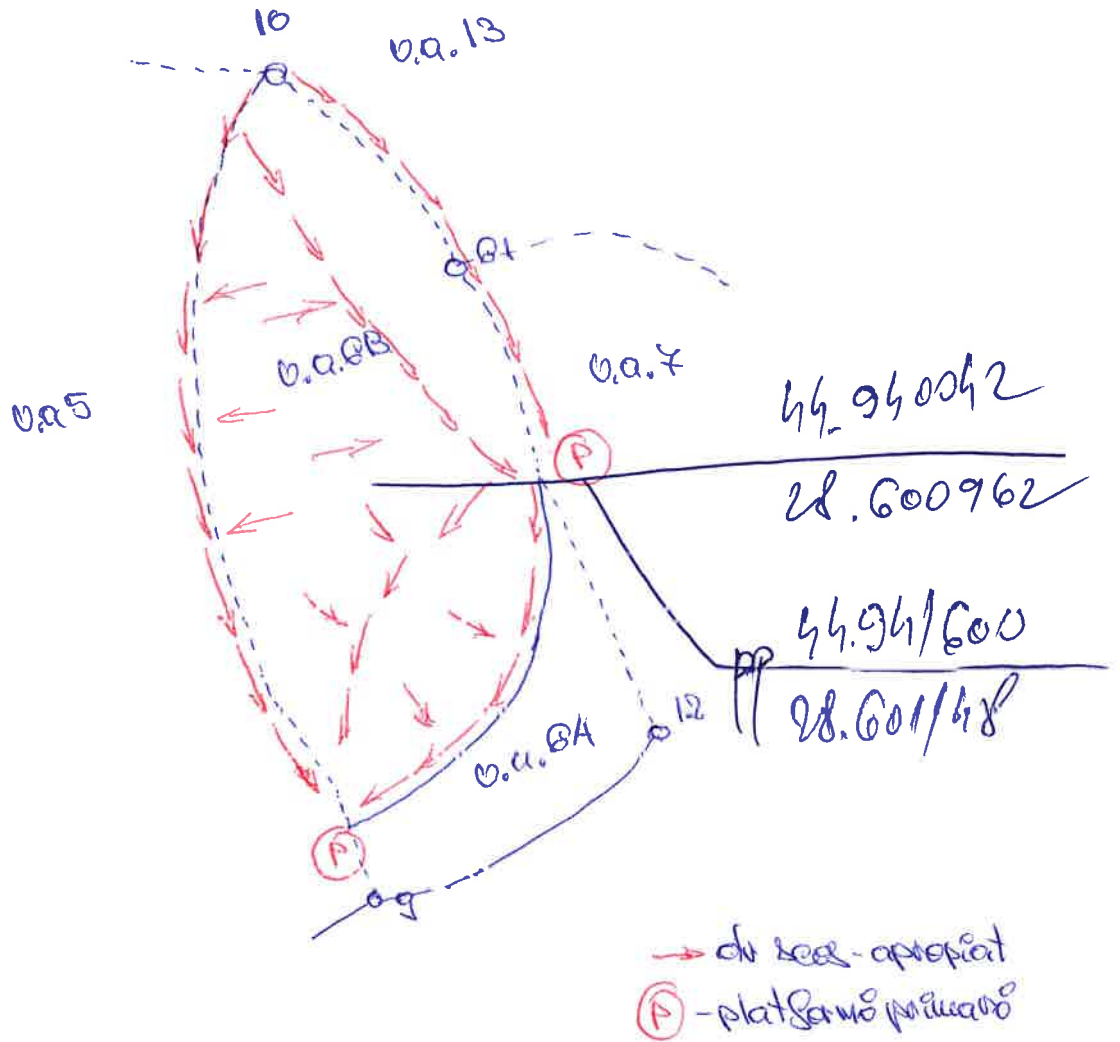 10
u.a. 13
61
u.a. 6B
u.a. 7
u.a 5
P
44.940042
28.600962
44.941600
PP
28.601148
12
u.a. 6A
P
9
→ dr scos-apropiat
P - platformă primară